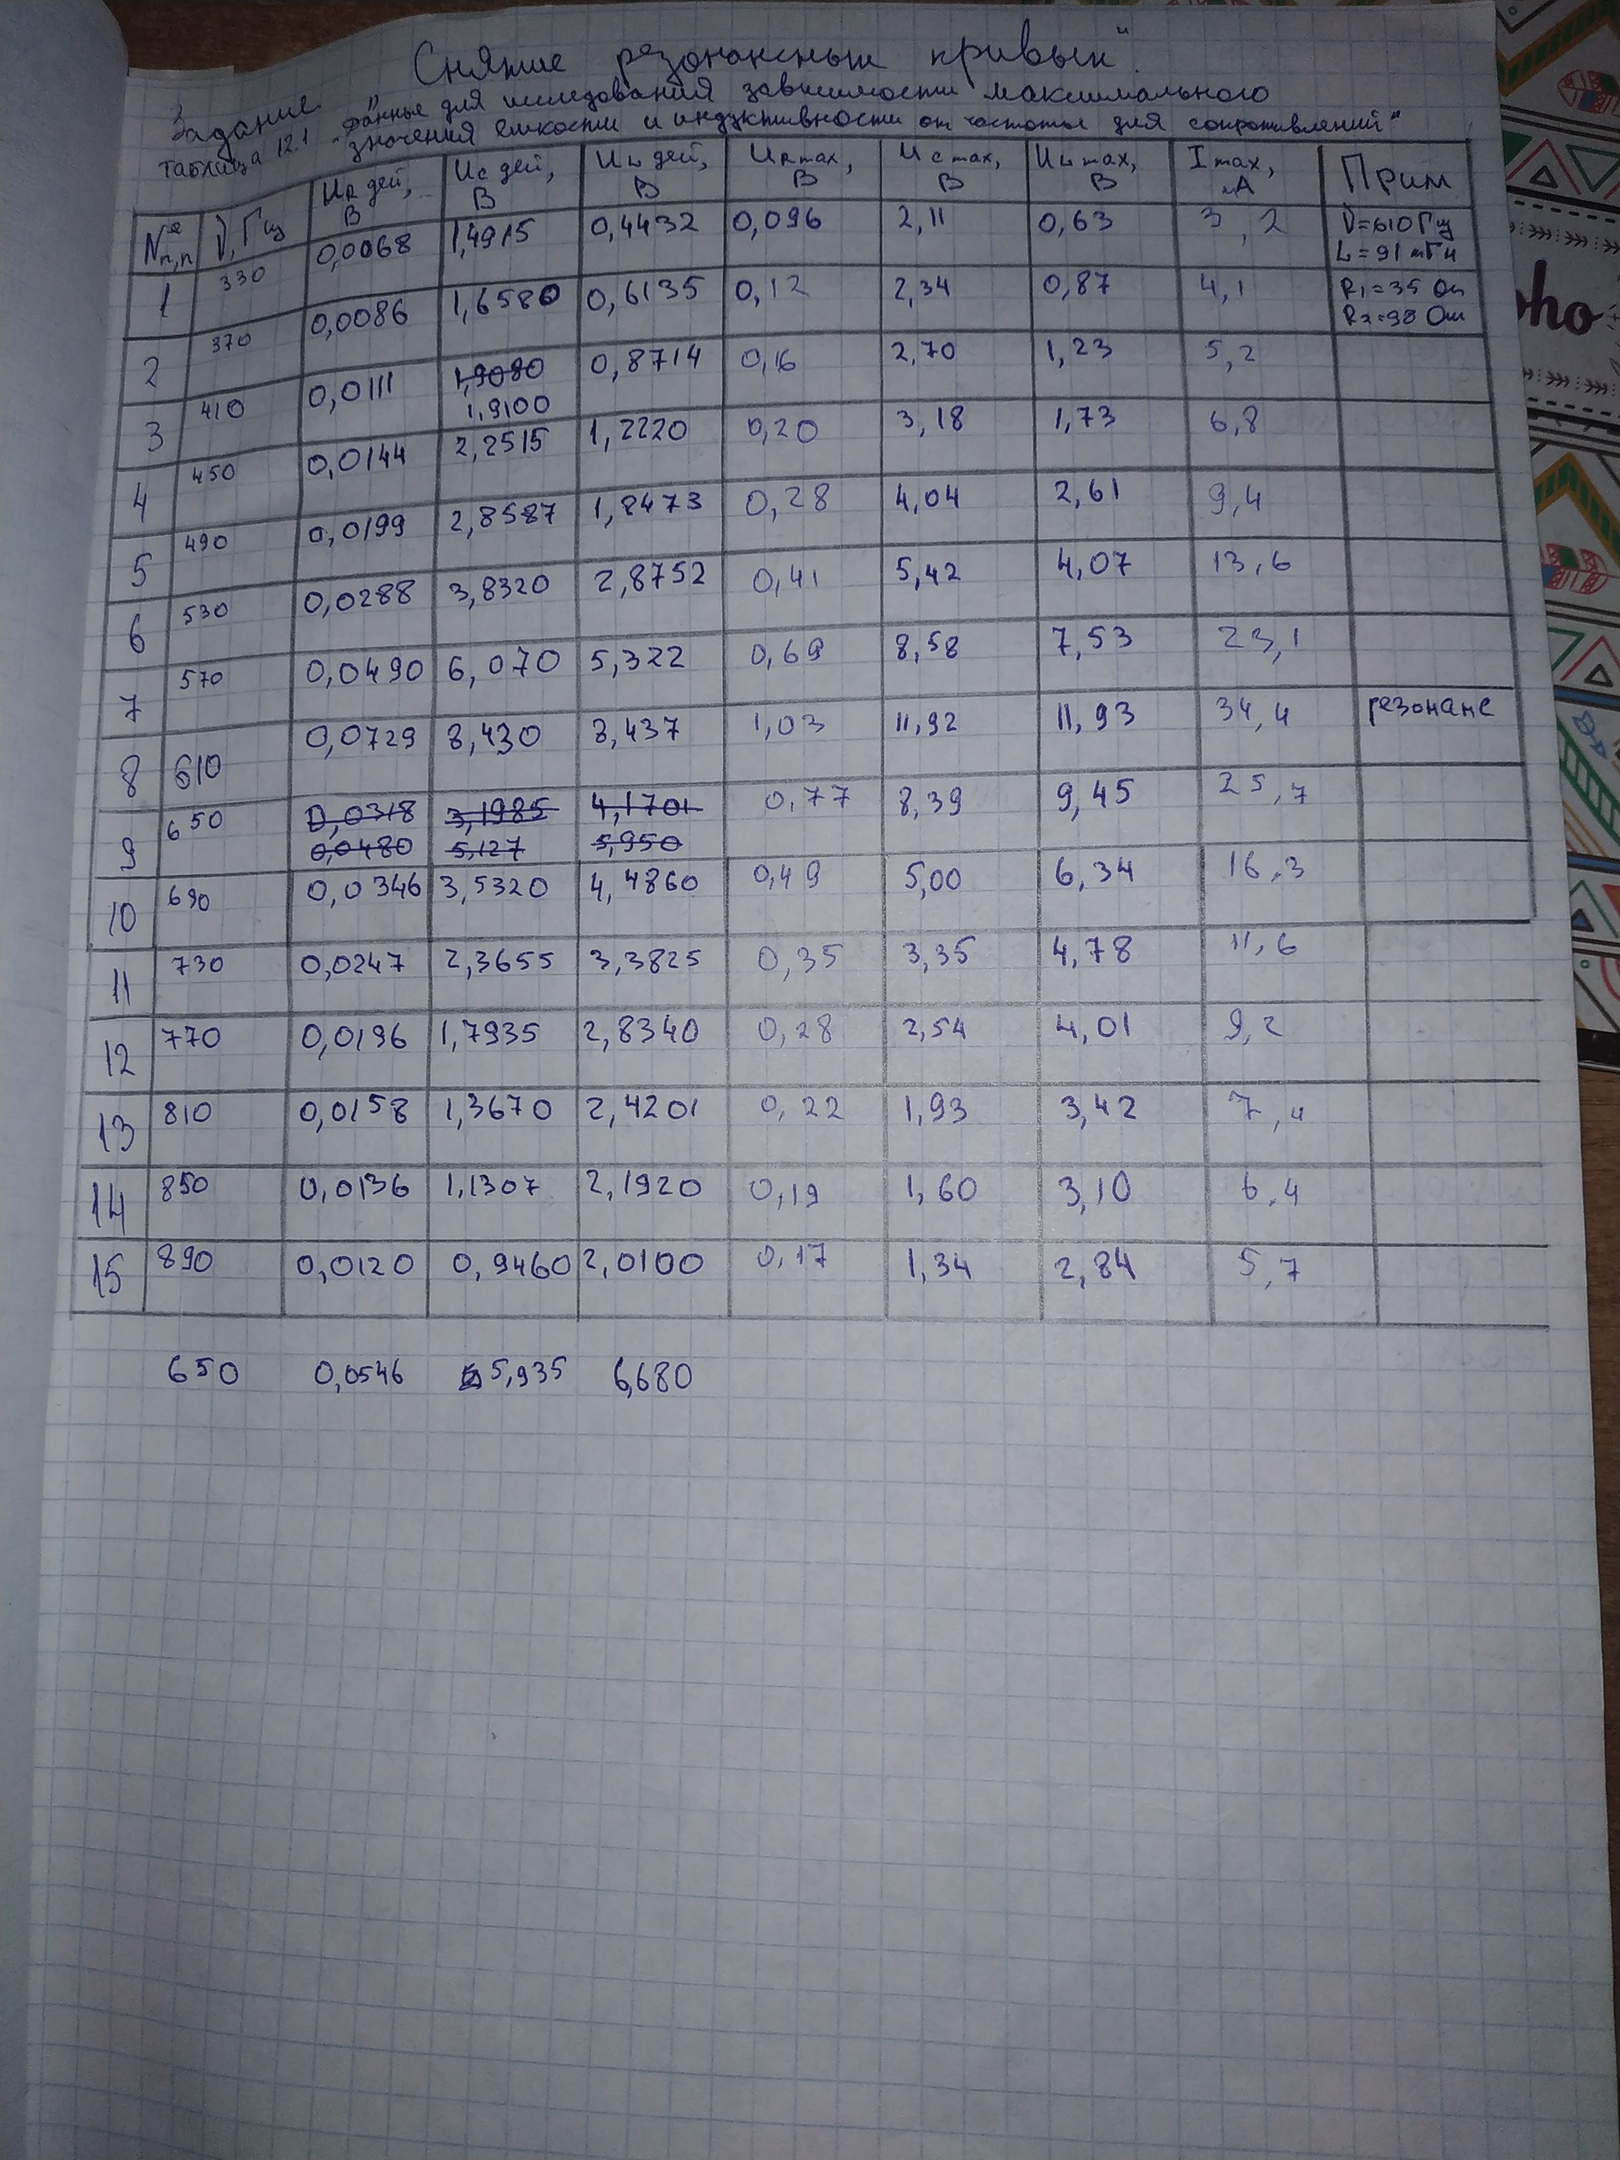 Снятие резонансных кривых"
Задание
Таблица 12.1 "Данные для исследования зависимости максимального
значения емкости и индуктивности от частоты для сопротивлений"
№ п,п ν, Гц UR дей, В UC дей, В UL дей, В UR max, В UC max, В UL max, В I max, мА Прим
1 330 0,0068 1,4915 0,4432 0,096 2,11 0,63 3,2 ν=610 Гц L=91 мГн
2 370 0,0086 1,6580 0,6135 0,12 2,34 0,87 4,1 R1=35 Ом R2=98 Ом
3 410 0,0111 1,9080 1,9100 0,8714 0,16 2,70 1,23 5,2
4 450 0,0144 2,2515 1,2220 0,20 3,18 1,73 6,8
5 490 0,0199 2,8587 1,8473 0,28 4,04 2,61 9,4
6 530 0,0288 3,8320 2,8752 0,41 5,42 4,07 13,6
7 570 0,0490 6,070 5,322 0,69 8,58 7,53 23,1
8 610 0,0729 8,430 8,437 1,03 11,92 11,93 34,4 резонанс
9 650 0,0318 3,1985 4,1701 0,77 8,39 9,45 25,7
0,0480 5,127 5,950
10 690 0,0346 3,5320 4,4860 0,49 5,00 6,34 16,3
11 730 0,0247 2,3655 3,3825 0,35 3,35 4,78 11,6
12 770 0,0196 1,7935 2,8340 0,28 2,54 4,01 9,2
13 810 0,0158 1,3670 2,4201 0,22 1,93 3,42 7,4
14 850 0,0136 1,1307 2,1920 0,19 1,60 3,10 6,4
15 890 0,0120 0,9460 2,0100 0,17 1,34 2,84 5,7
650 0,0546 5,935 6,680